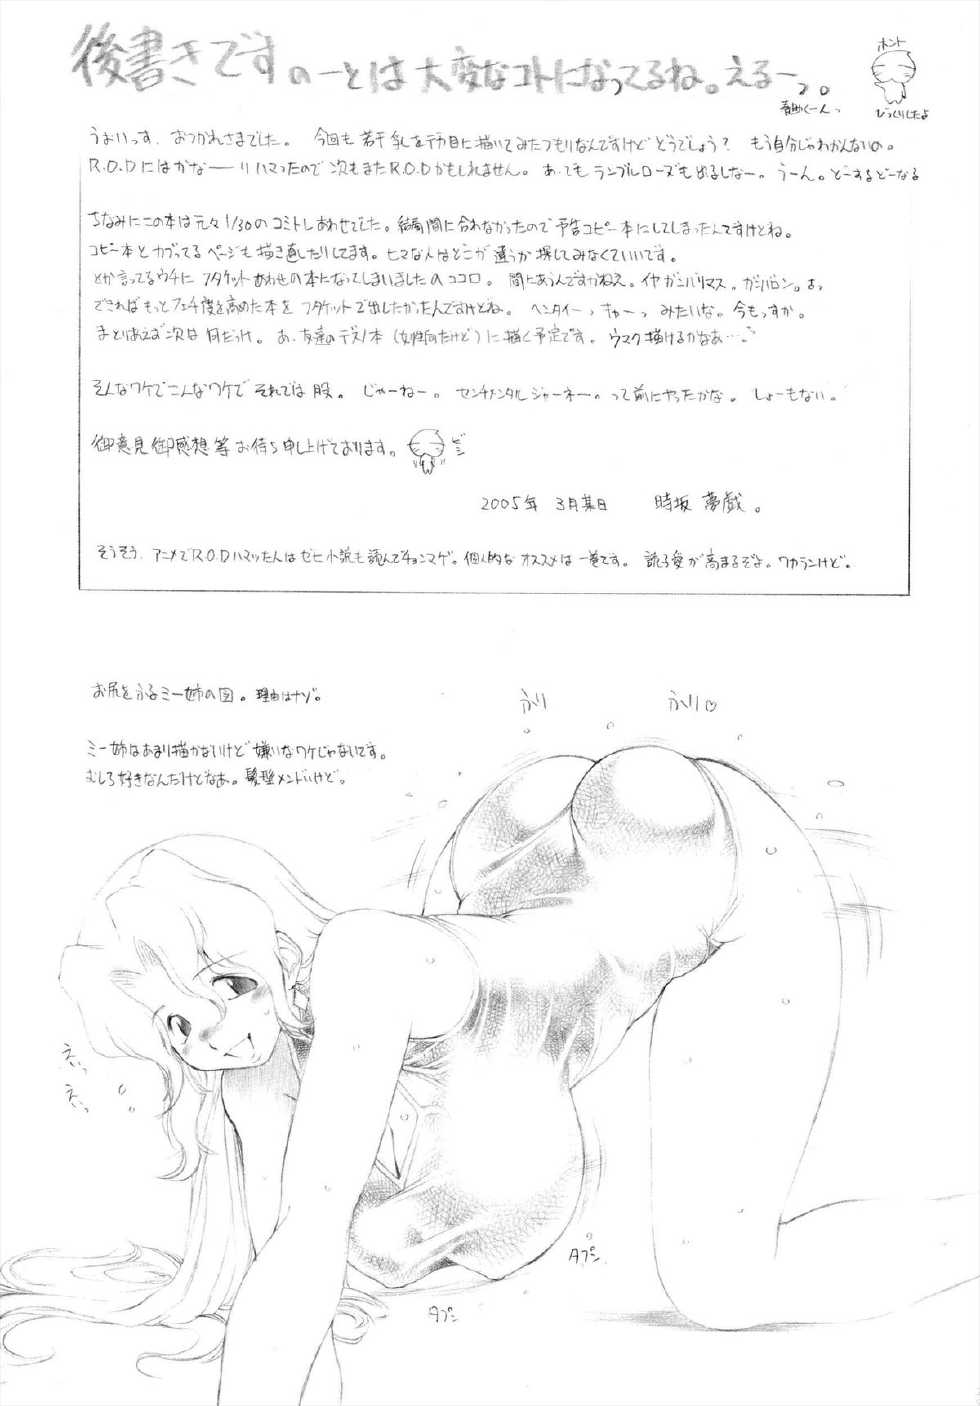 後書きです。のーとは大変なコトになってるね。えるー
ホント
びっくりしたよ
うぉいっす、おつかれさまでした。今回も若干乳を デカ目に描いてみたつもりなんですけど どうでしょう？ もう自分じゃわかんないの。
R.O.Dにはかなーーりハマったので次もまたR.O.Dかもしれません。あ、でもランブルローズも出るしなー。うーん。どーするどーなる
ちなみにこの本は元々1/30のコミトレあわせでした。結局間に合わなかったので予告コピー本にしてしまったんですけどね。
コピー本とカブってるページも描き直したりしてます。ヒマな人はどこが違うか探してみなくていいです。
とか言ってるウチにフタケットあわせの本になってしまいましたのココロ。間にあうんですかねえ。イヤガンバリマス。ガンバロン。
できればもっとフェチ度を高めた本をフタケットで出したかったんですけどね。ヘンターイっ きゃーっ みたいな。今もっすか。
まあとりあえず次は何だっけ。あ、友達のデスノ本（女性向だけど）に描く予定です。ウマク描けるかなあ…。
そんなワケでこんなワケで それでは股。じゃーねー。センチメンタルジャーネー。って前にやったかな。しょーもない。
御意見御感想等お待ち申し上げております。
2005年 3月某日 時坂夢戯。
そうそう、アニメでR.O.Dハマッた人はぜひ小説も読んでチョンマゲ。個人的なオススメは一巻です。読子愛が高まるぞよ。ワカランけど。
お尻をふるミー姉の図。理由はナゾ。
ふり
ふり♡
ミー姉はあまり描かないけど嫌いなワケじゃないです。
むしろ好きなんだけどなあ。髪型メンドいけど。
えっ
えっ
タプン
タプン